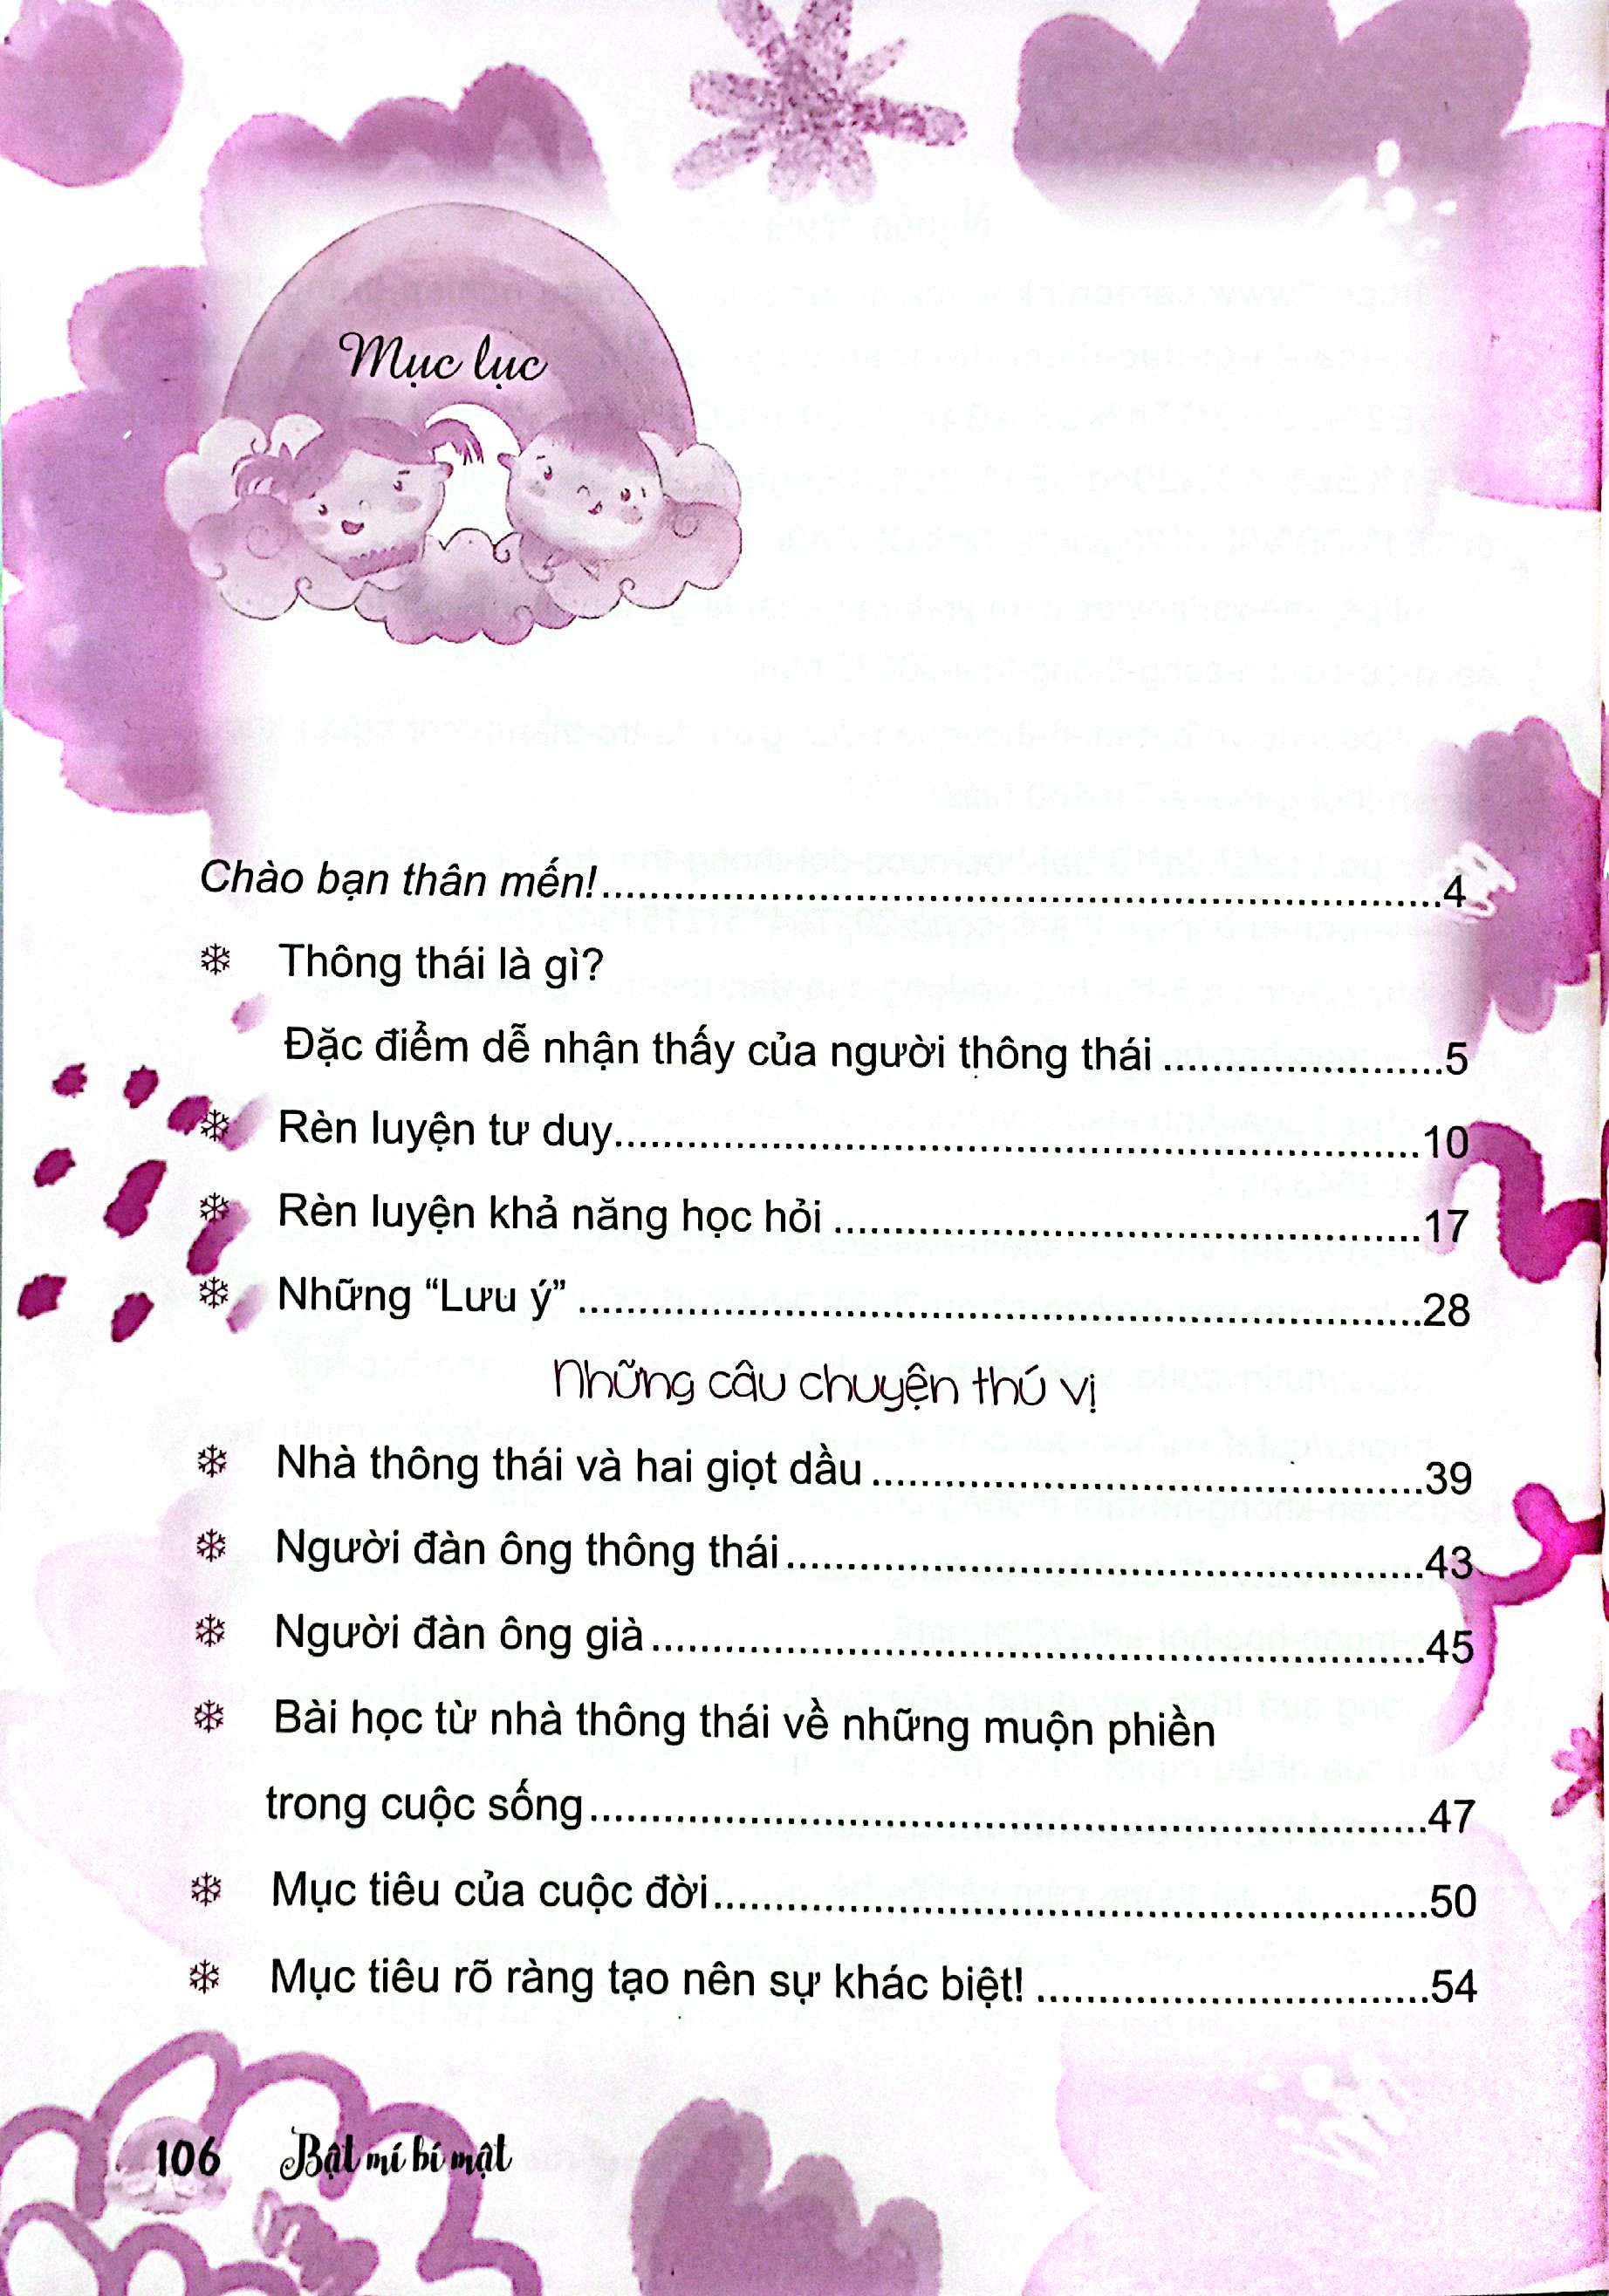 Mục lục
Chào bạn thân mến!........................................4
❄ Thông thái là gì?
Đặc điểm dễ nhận thấy của người thông thái.......................5
❄ Rèn luyện tư duy........................................10
❄ Rèn luyện khả năng học hỏi........................................17
❄ Những “Lưu ý”........................................28
Những câu chuyện thú vị
❄ Nhà thông thái và hai giọt dầu........................................39
❄ Người đàn ông thông thái........................................43
❄ Người đàn ông già........................................45
❄ Bài học từ nhà thông thái về những muộn phiền
trong cuộc sống........................................47
❄ Mục tiêu của cuộc đời........................................50
❄ Mục tiêu rõ ràng tạo nên sự khác biệt!................................54
106 Bật mí bí mật